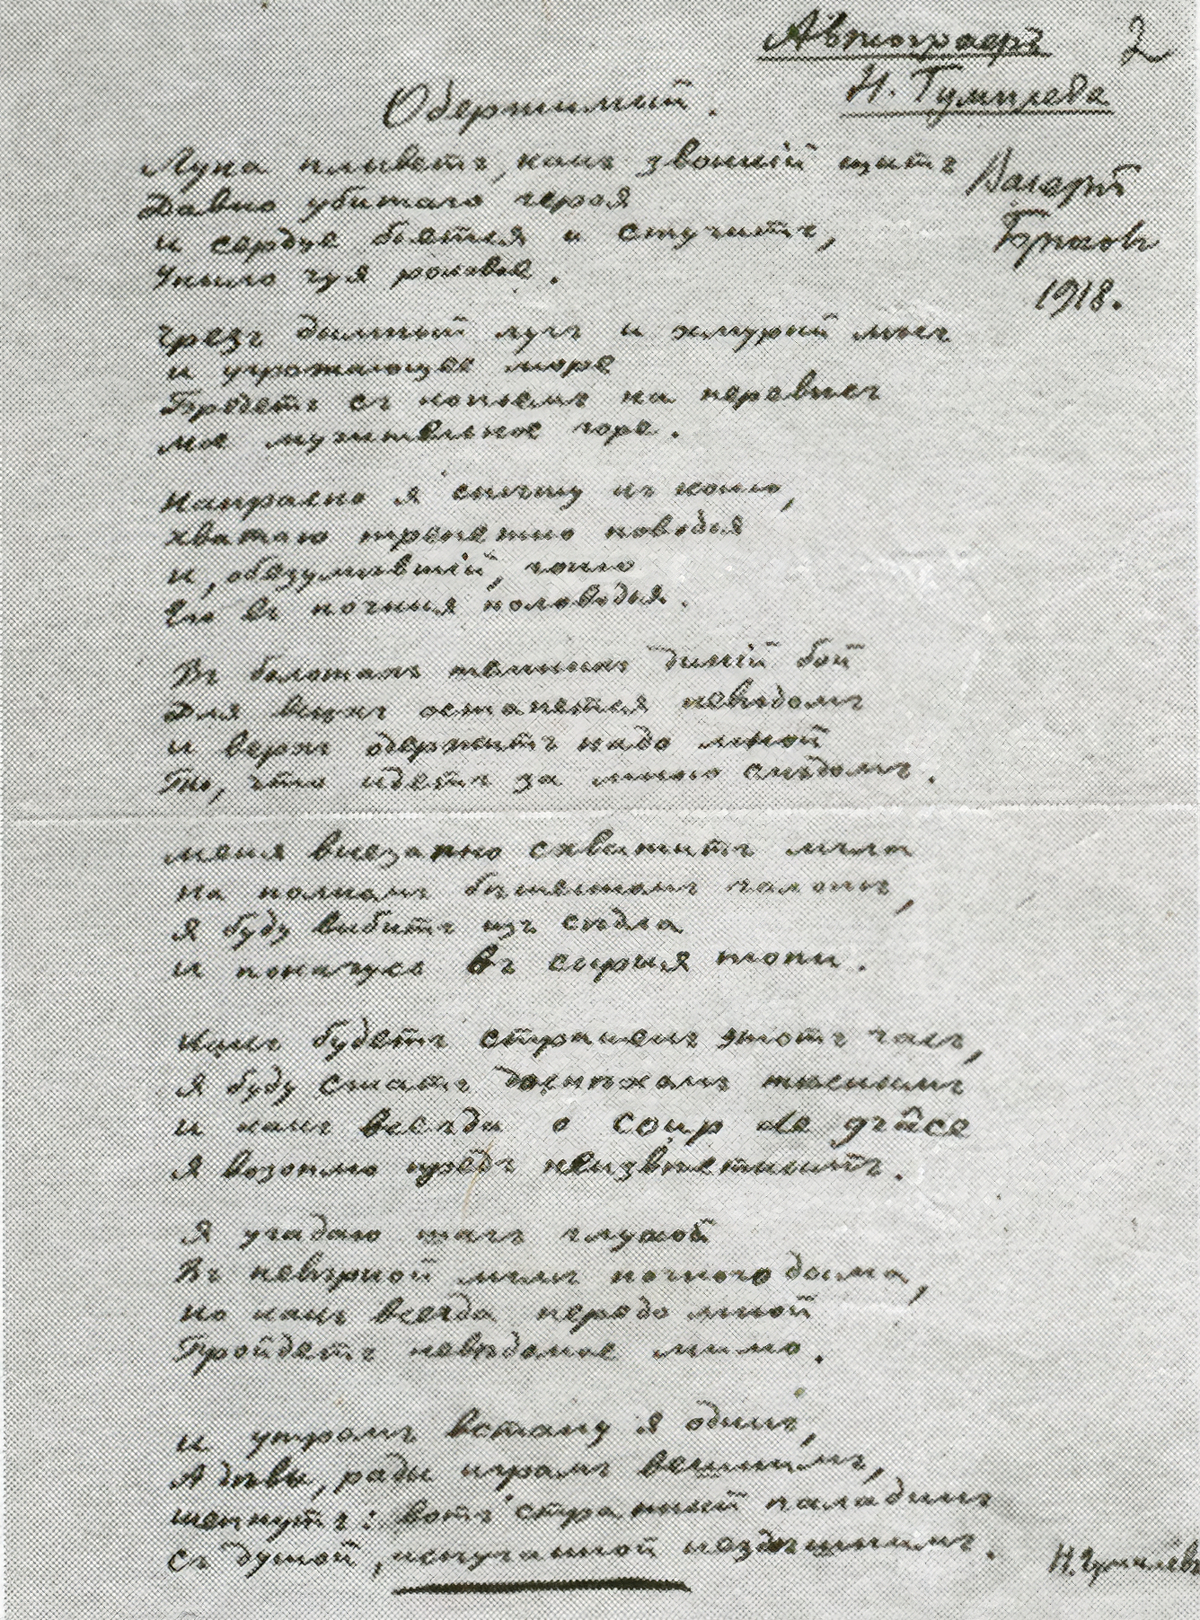 Автографъ 2
Н. Гумилева
Одержимый.
Валерій
Брюсовъ
1918.
Луна плыветъ, какъ звонкій щитъ
Давно убитаго героя
и сердце бьется и стучитъ,
Уныло чуя роковое.
Чрезъ дымный лугъ и хмурый лѣсъ
и угрожающее море
Бредетъ съ копьемъ на перевѣсъ
мое мучительное горе.
Напрасно я спѣшу къ коню,
хватаю трепетно поводья
и, обезумѣвшій, гоню
Его въ ночныя половодья.
Въ болотахъ темныхъ дикій бой
Для всѣхъ останется невѣдомъ
и верхъ одержитъ надо мной
Тно, что идетъ за мною слѣдомъ.
меня внезапно схватитъ мгла
на полномъ бѣшеномъ галопѣ,
я буду выбитъ изъ сѣдла
и покачусь въ сырыя топи.
Какъ будетъ страшенъ этотъ часъ,
я буду сжатъ доспѣхомъ тѣснымъ
и какъ всегда о coup de grâce
я возоплю предъ неизвѣстнымъ.
Я угадаю шагъ глухой
Въ невѣрной мглѣ ночного дыма,
но какъ всегда передо мной
Пройдетъ невѣдомое мимо.
и утромъ встану я одинъ,
А дѣвы, рады играмъ вешнимъ,
шепнутъ: вотъ странный паладинъ
съ душой, испуганной нездѣшнимъ.
Н. Гумилевъ